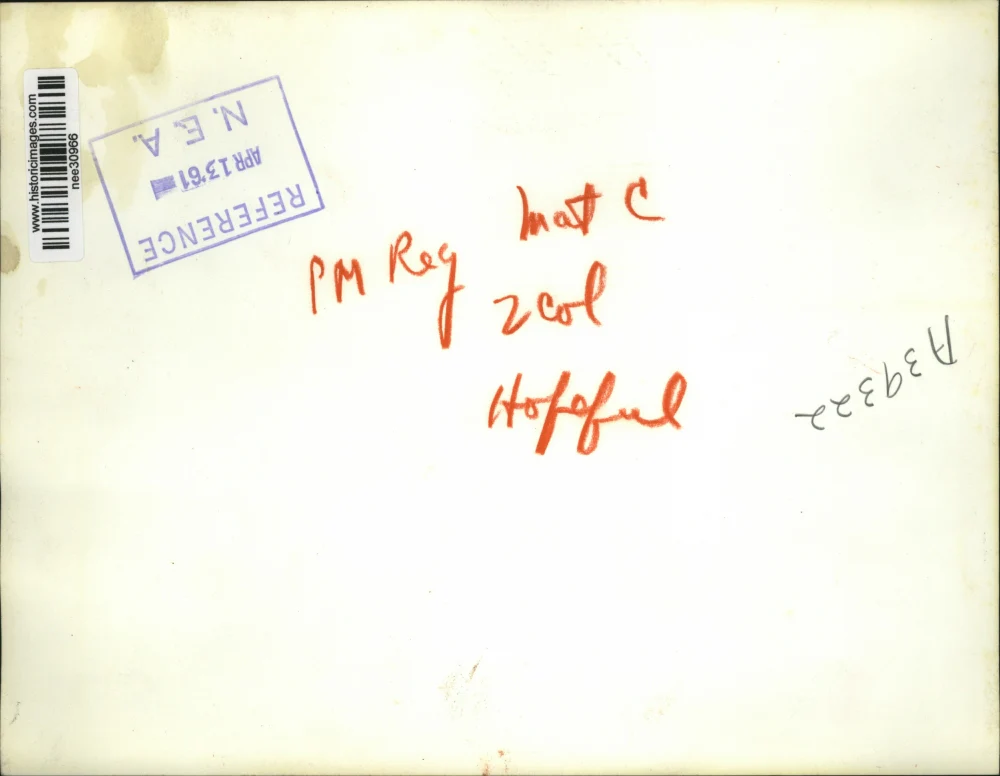 www.historicimages.com
nee30966
REFERENCE
APR 13 '61
N. E. A.
Mat C
PM Reg
2 col
Hopeful
A39322